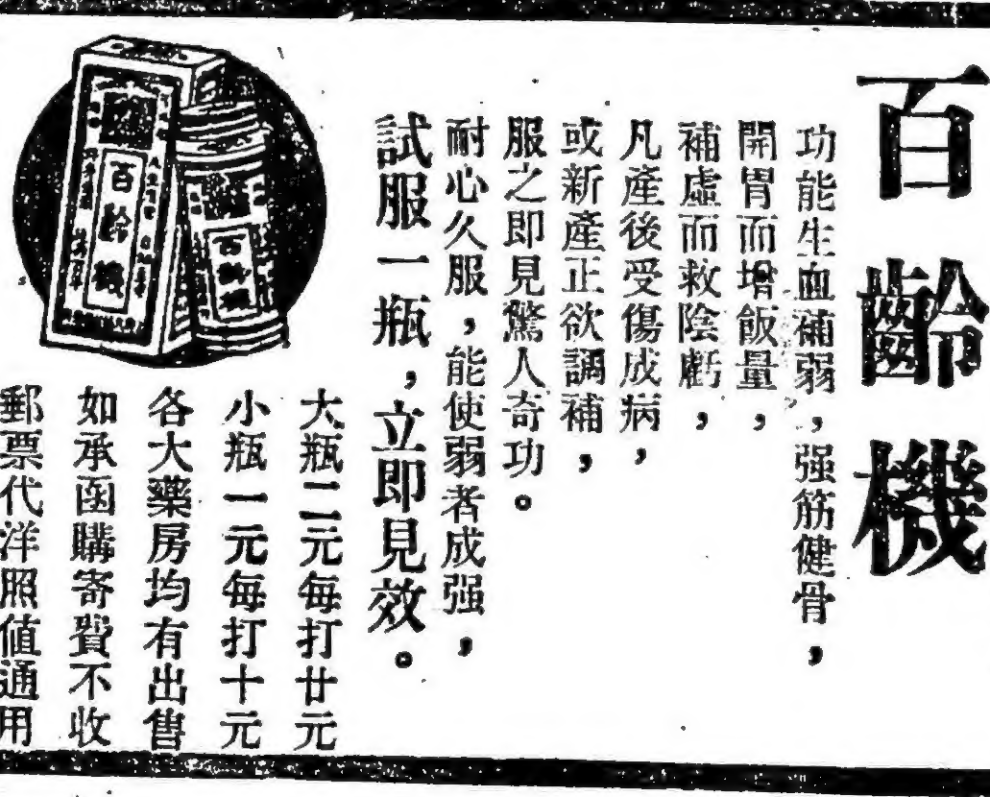 百齡機
功能生血補弱，强筋健骨，
開胃而增飯量，
補虛而救陰虧，
凡產後受傷成病，
或新產正欲調補，
服之即見驚人奇功。
耐心久服，能使弱者成强，
試服一瓶，立即見效。
百齡機
百齡機
大瓶二元每打廿元
小瓶一元每打十元
各大藥房均有出售
如承函購寄費不收
郵票代洋照值通用